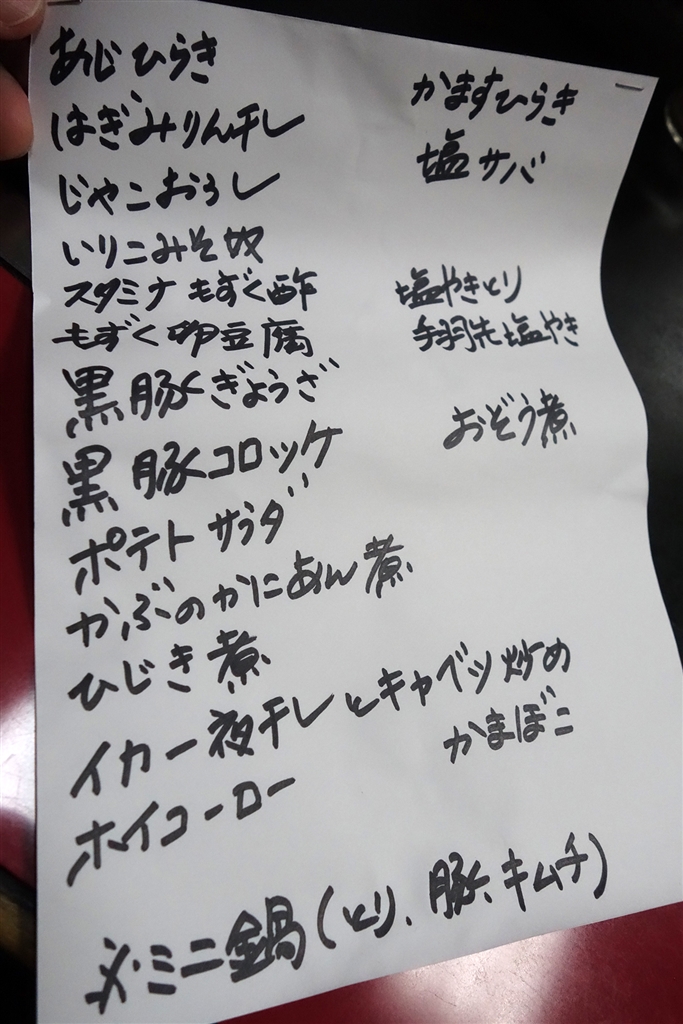 あじひらき
かますひらき
はぎみりん干し
塩サバ
じゃこおろし
いりこみそ奴
スタミナもずく酢
塩やきとり
もずく卵豆腐
手羽先塩やき
黒豚ぎょうざ
おぞう煮
黒豚コロッケ
ポテトサラダ
かぶのかにあん煮
ひじき煮
イカ一夜干しとキャベツ炒め
かまぼこ
ホイコーロー
ミニ鍋(とり、豚、キムチ)